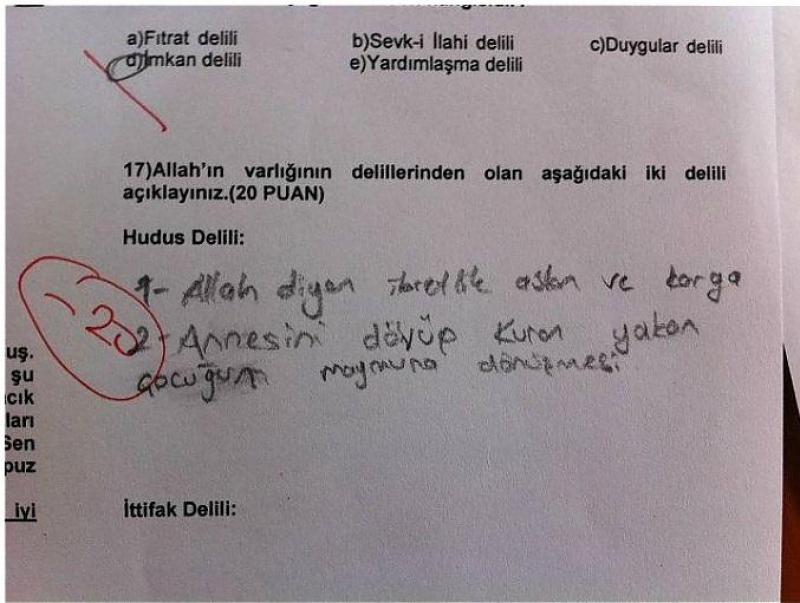 a)Fıtrat delili
b)Sevk-i İlahi delili
c)Duygular delili
d)İmkan delili
e)Yardımlaşma delili
17)Allah'ın varlığının delillerinden olan aşağıdaki iki delili
açıklayınız.(20 PUAN)
Hudus Delili:
1- Allah diyen ibretlik aslan ve karga
2- Annesini dövüp Kuran yakan
çocuğun maymuna dönüşmesi
-20
uş.
şu
cık
ları
Sen
puz
iyi
İttifak Delili: